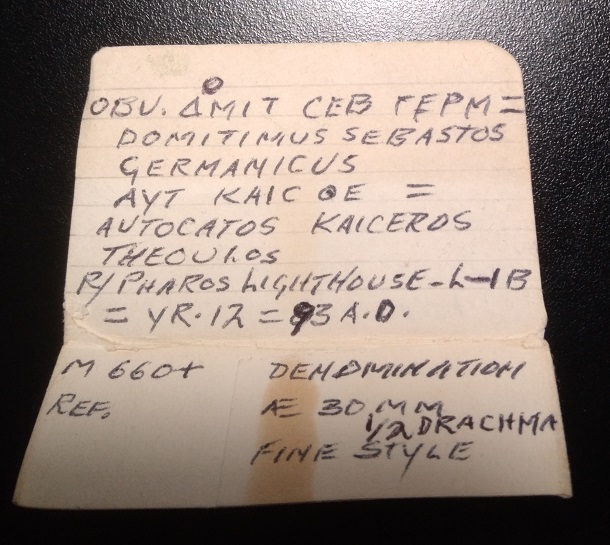 OBV. ΔOMIT CEB ΓEPM =
DOMITIMUS SEBASTOS
GERMANICUS
AYT KAIC ΘE =
AUTOCATOS KAICEROS
THEOULOS
R/ PHAROS LIGHTHOUSE-L-IB
= YR. 12 = 93 A.D.
M 660+
REF.
DENOMINATION
Æ 30 MM
1/2 DRACHMA
FINE STYLE